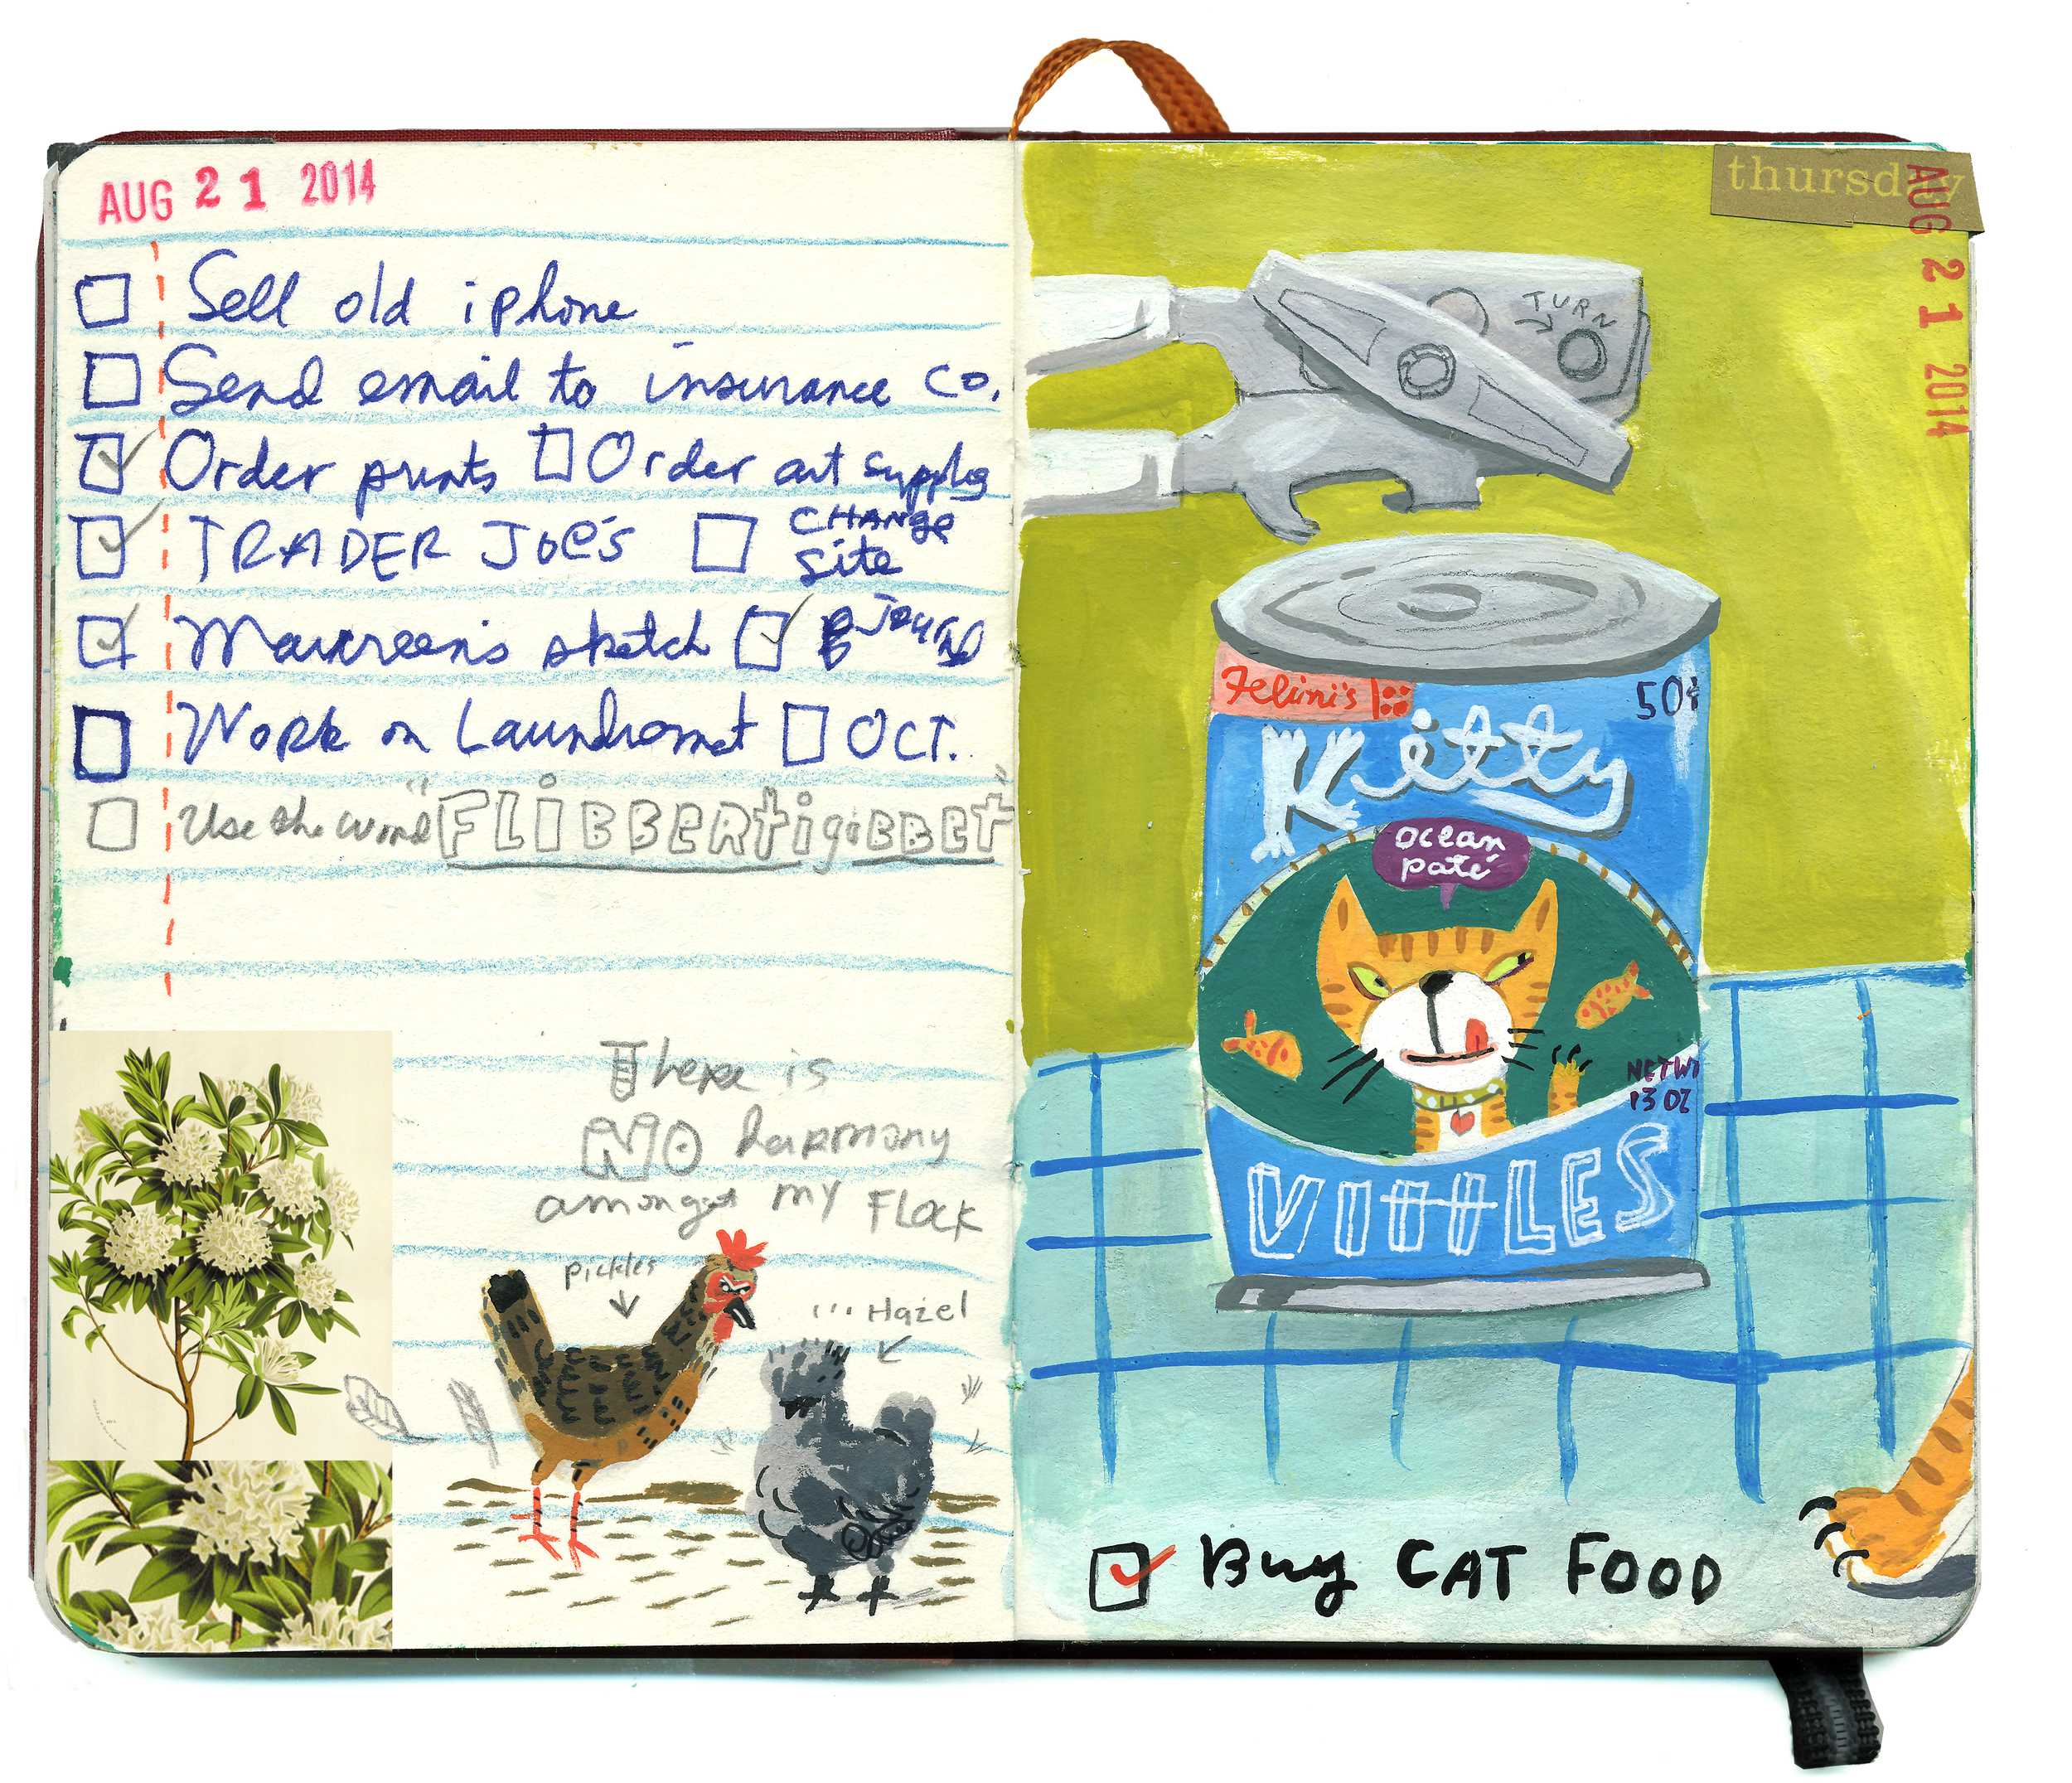 AUG 21 2014
Sell old iphone
Send email to insurance Co.
Order prints Order art supplies
TRADER JOE'S CHANGE
Site
Maureen's sketch
Work on Laundromat OCT.
Use the word "FLIBBERTigiBBET"
There is
NO harmony
amongst my FLock
Pickles
Hazel
thursday
AUG 21 2014
TURN
Felini's
50¢
Kitty
Ocean
paté
NET WT
13 OZ
VITTLES
Buy CAT FOOD